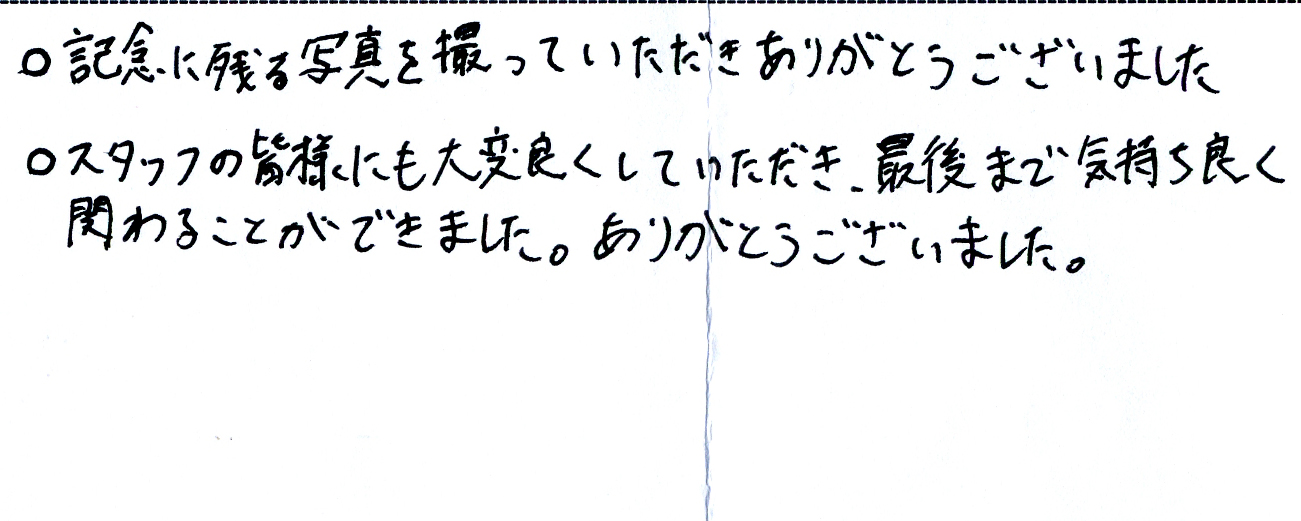 ○記念に残る写真を撮っていただきありがとうございました
○スタッフの皆様にも大変良くしていただき、最後まで気持ち良く
関わることができました。ありがとうございました。